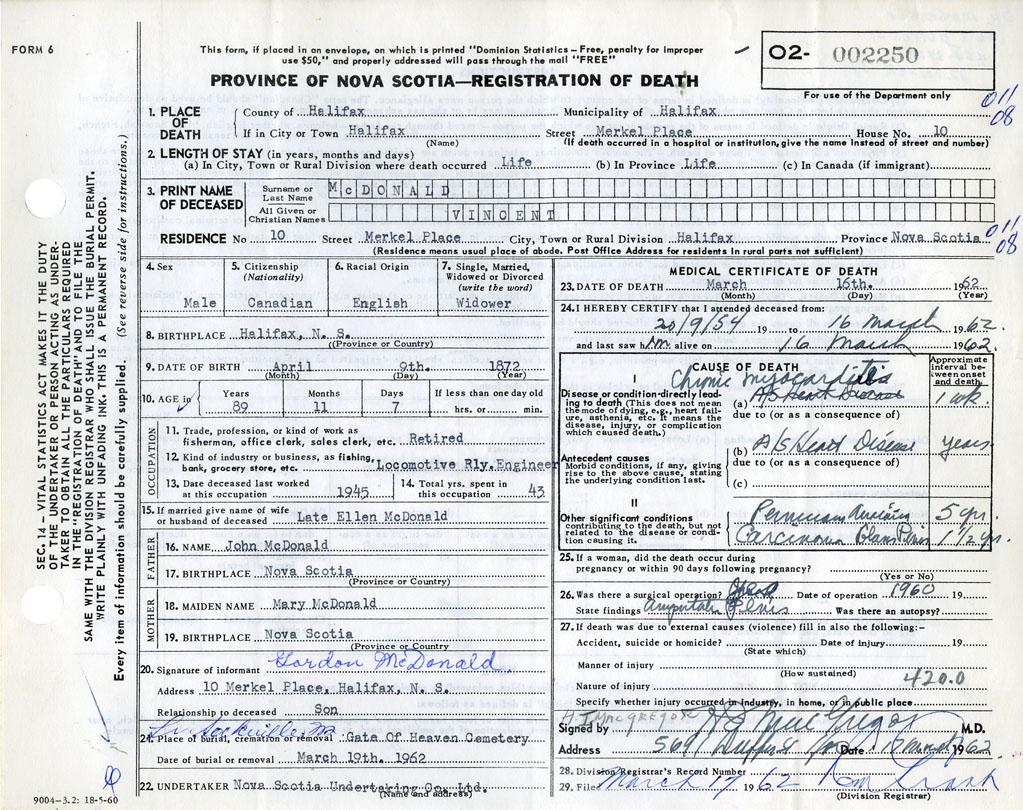 FORM 6
This form, if placed in an envelope, on which is printed "Dominion Statistics – Free, penalty for improper
use $50," and properly addressed will pass through the mail "FREE"
PROVINCE OF NOVA SCOTIA—REGISTRATION OF DEATH
02- 002250
For use of the Department only
011
08
SEC. 14 – VITAL STATISTICS ACT MAKES IT THE DUTY
OF THE UNDERTAKER OR PERSON ACTING AS UNDER-
TAKER TO OBTAIN ALL THE PARTICULARS REQUIRED
IN THE "REGISTRATION OF DEATH" AND TO FILE THE
SAME WITH THE DIVISION REGISTRAR WHO SHALL ISSUE THE BURIAL PERMIT.
WRITE PLAINLY WITH UNFADING INK. THIS IS A PERMANENT RECORD.
Every item of information should be carefully supplied. (See reverse side for instructions.)
1. PLACE OF DEATH
County of Halifax Municipality of Halifax
If in City or Town Halifax Street Merkel Place House No. 10
(Name) (If death occurred in a hospital or institution, give the name instead of street and number)
2. LENGTH OF STAY (in years, months and days)
(a) In City, Town or Rural Division where death occurred Life (b) In Province Life (c) In Canada (if immigrant)
3. PRINT NAME OF DECEASED
Surname or Last Name McDONALD
All Given or Christian Names VINCENT
011
08
RESIDENCE No 10 Street Merkel Place City, Town or Rural Division Halifax Province Nova Scotia
(Residence means usual place of abode. Post Office Address for residents in rural parts not sufficient)
4. Sex Male
5. Citizenship (Nationality) Canadian
6. Racial Origin English
7. Single, Married, Widowed or Divorced (write the word) Widower
8. BIRTHPLACE Halifax, N. S.
(Province or Country)
9. DATE OF BIRTH April 9th. 1872
(Month) (Day) (Year)
10. AGE in Years 89 Months 11 Days 7 If less than one day old hrs. or min.
OCCUPATION
11. Trade, profession, or kind of work as
fisherman, office clerk, sales clerk, etc. Retired
12. Kind of industry or business, as fishing,
bank, grocery store, etc. Locomotive Rly. Engineer
13. Date deceased last worked at this occupation 1945
14. Total yrs. spent in this occupation 43
15. If married give name of wife
or husband of deceased Late Ellen McDonald
FATHER
16. NAME John McDonald
17. BIRTHPLACE Nova Scotia
(Province or Country)
MOTHER
18. MAIDEN NAME Mary McDonald
19. BIRTHPLACE Nova Scotia
(Province or Country
20. Signature of informant Gordon McDonald
Address 10 Merkel Place, Halifax, N. S.
Relationship to deceased Son
Sackville
21. Place of burial, cremation or removal Gate Of Heaven Cemetery
Date of burial or removal March 19th. 1962
22. UNDERTAKER Nova Scotia Undertaking Co. Ltd.
(Name and address)
9004-3.2: 18-5-60
MEDICAL CERTIFICATE OF DEATH
23. DATE OF DEATH March 16th. 1962
(Month) (Day) (Year)
24. I HEREBY CERTIFY that I attended deceased from:
20/9/54 19 to 16 March 1962
and last saw him alive on 16 March 1962
CAUSE OF DEATH
Approximate interval between onset and death
I
Chronic myocarditis
Disease or condition directly lead-
ing to death (This does not mean
the mode of dying, e.g., heart fail-
ure, asthenia, etc. It means the
disease, injury, or complication
which caused death.)
(a) A/S Heart Disease 1 wk.
due to (or as a consequence of)
Antecedent causes
Morbid conditions, if any, giving
rise to the above cause, stating
the underlying condition last.
(b) A/S Heart Disease years
due to (or as a consequence of)
(c)
II
Other significant conditions
contributing to the death, but not
related to the disease or condi-
tion causing it.
5 yr.
Carcinoma Glans Penis 1 1/2 yr.
25. If a woman, did the death occur during
pregnancy or within 90 days following pregnancy?
(Yes or No)
26. Was there a surgical operation? Date of operation 1960 19
State findings Penis Was there an autopsy?
27. If death was due to external causes (violence) fill in also the following:–
Accident, suicide or homicide? Date of injury 19
(State which)
Manner of injury
(How sustained)
420.0
Nature of injury
Specify whether injury occurred in industry, in home, or in public place
MACGREGOR
Signed by MacGregor M.D.
Address 569 Date March 1962
28. Division Registrar's Record Number
29. Filed March 17 1962
(Division Registrar)